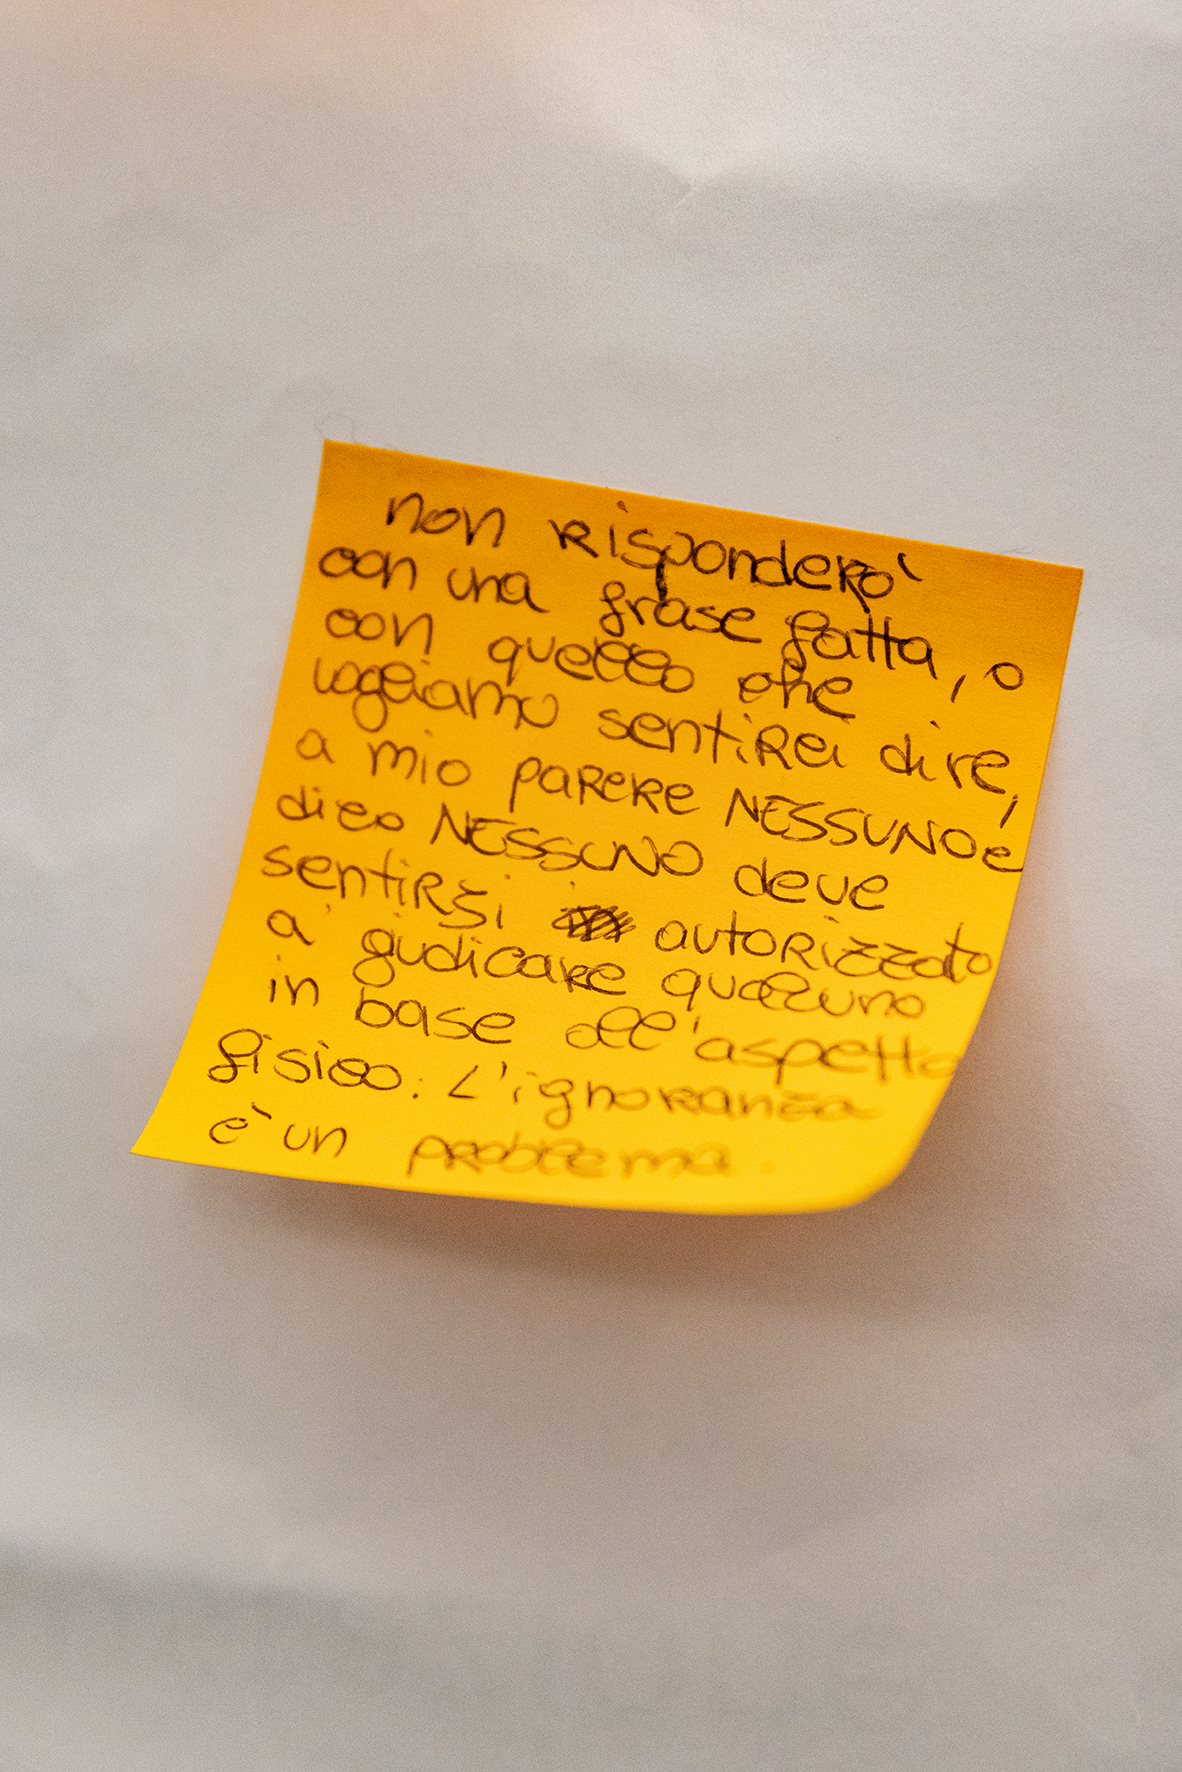 non risponderò
con una frase fatta, o
con quello che
vogliamo sentirci dire,
a mio parere NESSUNO e
dico NESSUNO deve
sentirsi autorizzato
a giudicare qualcuno
in base all'aspetto
fisico. L'ignoranza
è un problema.